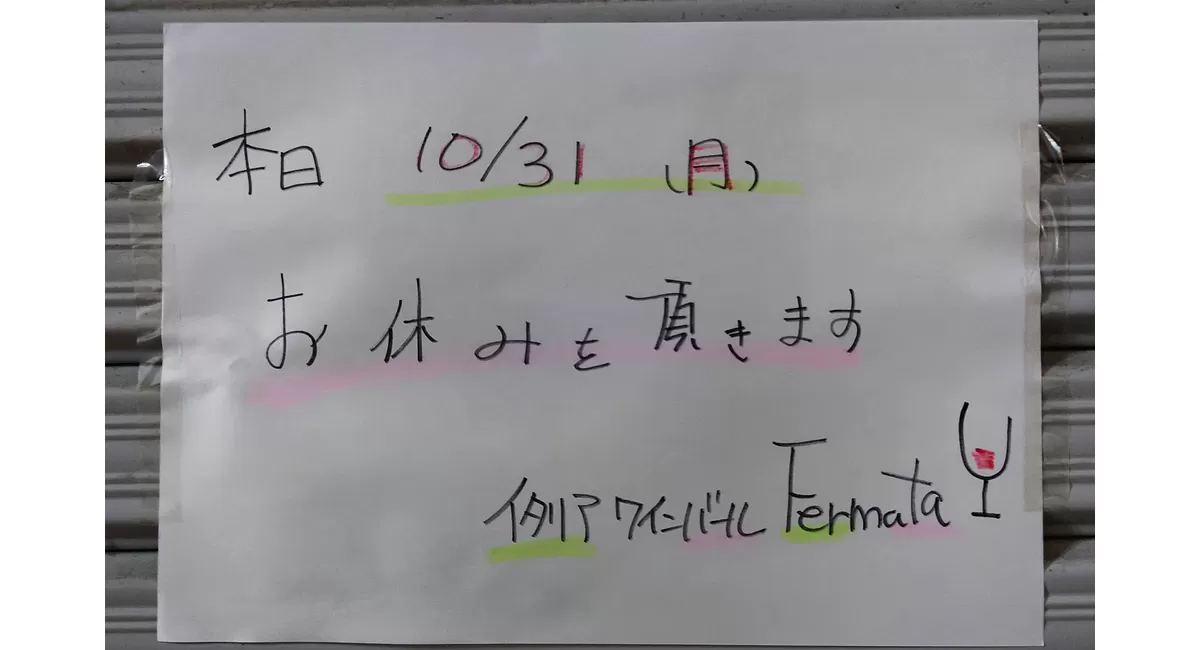 本日 10/31 (月)
お休みを頂きます
イタリアワインバール Fermata